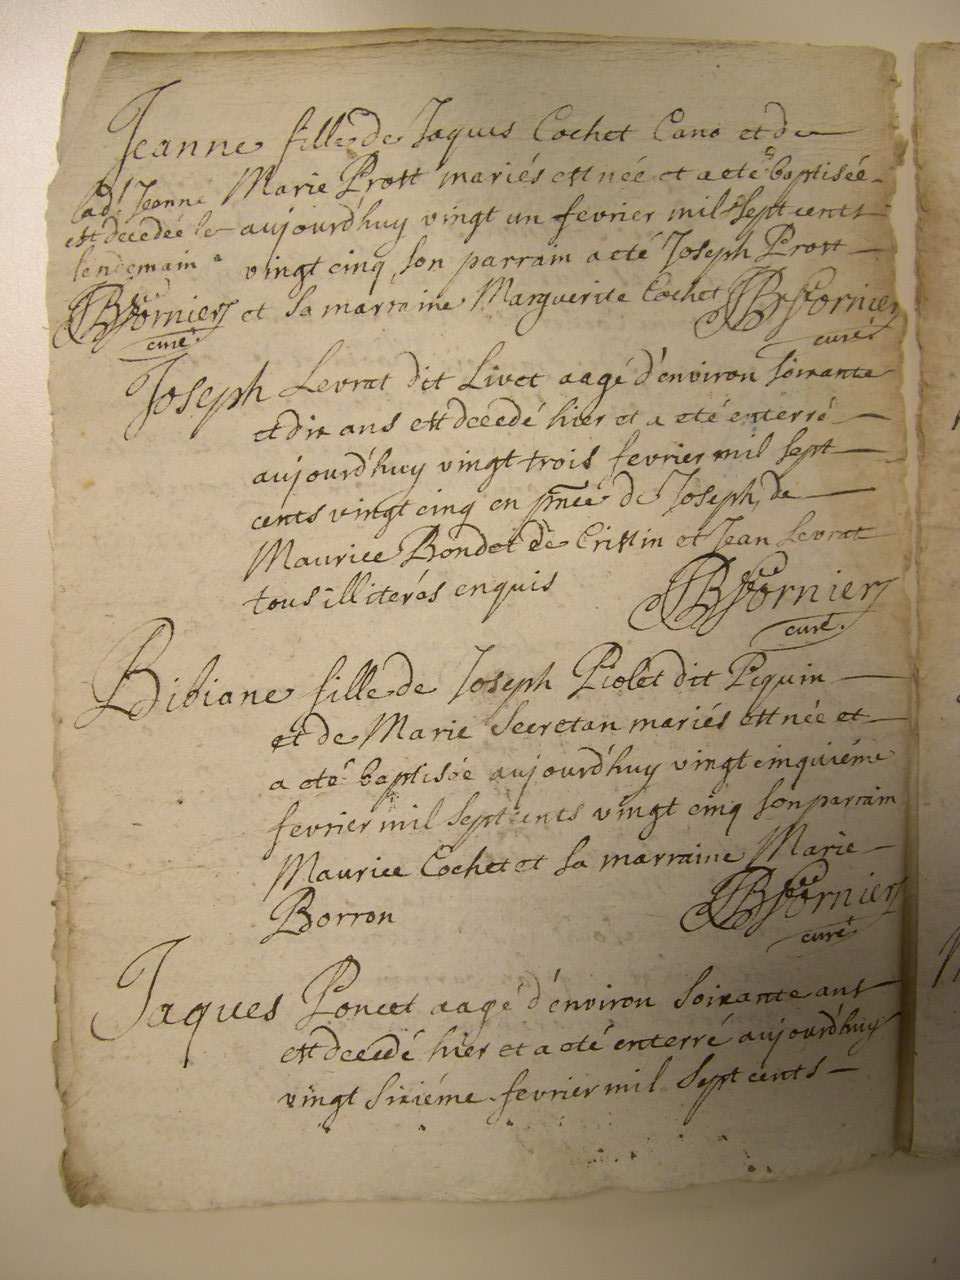 Jeanne fille de Jaques Cochet Cano et de
Marie Prost mariés est née et a eté baptisée
aujourd'huy vingt un fevrier mil sept cents
vingt cinq son parrain a eté Joseph Prost
et sa marraine Marguerite Cochet JB Fornier
curé
lad. Jeanne
est decedée le
lendemain
JB Fornier
curé
Joseph Levrat dit Livet aagé d'environ soixante
et dix ans est decedé hier et a eté enterré
aujourd'huy vingt trois fevrier mil sept
cents vingt cinq en pnce de Joseph, de
Maurice Bondet de Cristin et Jean Levrat
tous illiterés enquis JB Fornier
curé.
Bibiane fille de Joseph Piolet dit Pequin
et de Marie Secretan mariés est née et
a eté baptisée aujourd'huy vingt cinquiéme
fevrier mil sept cents vingt cinq son parrain
Maurice Cochet et sa marraine Marie
Borron JB Fornier
curé
Jaques Poncet aagé d'environ soixante ans
est decedé hier et a eté enterré aujourd'huy
vingt sixiéme fevrier mil sept cents